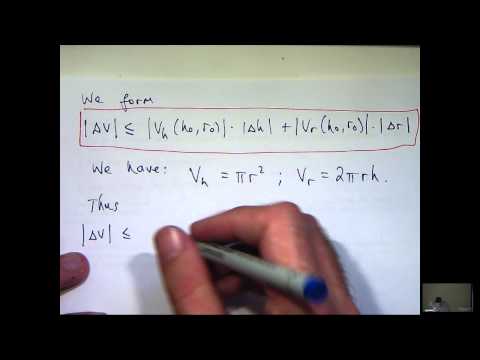 We form
|ΔV| ≤ |V_h (h₀, r₀)| · |Δh| + |V_r (h₀, r₀)| · |Δr|
We have: V_h = πr² ; V_r = 2πrh.
Thus
|ΔV| ≤